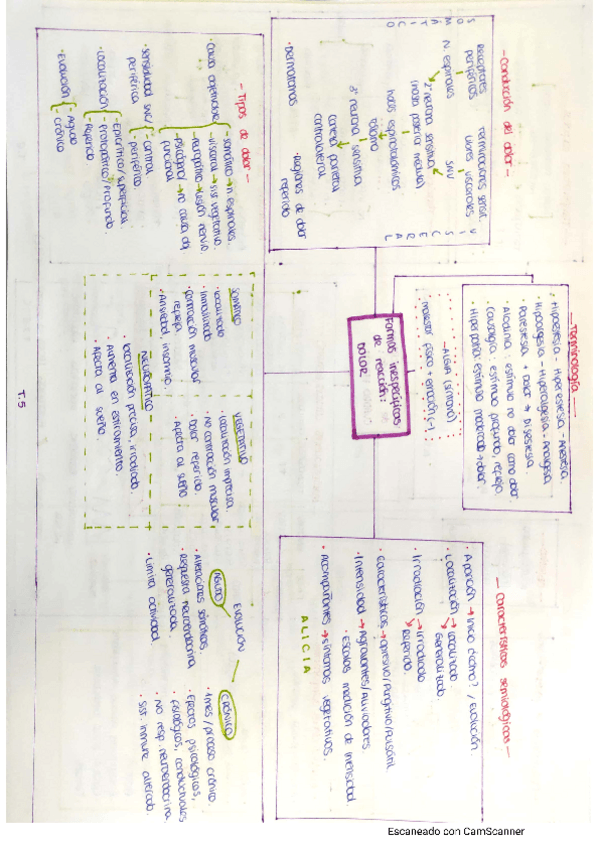 - Conducción del dolor -
SOMÁTICO
Receptores
periféricos
N. espinales
Terminaciones sensit.
libres viscerales
SNV
2ª neurona sensitiva
(hasta posterior médula)
haces espinotalámicos
tálamo
3ª neurona sensitiva
corteza parietal
contralateral
VISCERAL
· Dermatomas
· Regiones de dolor
referido
— Terminología —
· Hipoestesia - Hiperestesia - Anestesia.
· Hipoalgesia - Hiperalgesia - Analgesia.
· Parestesia + dolor → Disestesia.
· Alodinia: estímulo no dolor como dolor
· Causalgia: estímulo profundo, reflejo.
· Hiperpatía: estímulo moderado → dolor
Formas inespecíficas
de reacción:
DOLOR
- ALGIA (síntoma)
malestar físico + emoción (-)
— Características semiológicas —
· Aparición → Inicio ¿cómo? / evolución.
· Localización → localizado
Generalizado.
· Irradiación → irradiado
Referido.
· Características → opresivo/Pungitivo/Pulsátil
· Intensidad → Agravantes/Aliviadores
· Escalas medición de intensidad
· Acompañantes → síntomas vegetativos.
ALICIA
- Tipos de dolor -
· Causa
- somático → n espinales.
- visceral → sist vegetativo
- neuropático → lesión nervio.
- psicógeno/ → no causa
funcional
· Sensibilidad SNC/
periférica
- central
- periférico
· Localización
- Epicrítico/superficial
- Protopático/Profundo.
- Referido
· Evolución
- Agudo
- Crónico
SOMÁTICO
· localizado
· inmovilizado
· contracción muscular
refleja
· Ansiedad, insomnio.
VEGETATIVO
· Localización imprecisa.
· No contracción muscular
· Dolor referido.
· Afecta al sueño
NEUROPÁTICO
· localización precisa, irradiado.
· Aumenta en estiramiento.
· Afecta al sueño.
Evolución
AGUDO
· Alteraciones somáticas.
· Respuesta neuroendocrina
generalizada.
· Limita actividad
CRÓNICO
· 1mes/proceso crónico.
· Efectos psicológicos,
fisiológicos, conductuales
· No resp. neuroendocrina
· Sist. inmune alterado.
T.5
Escaneado con CamScanner